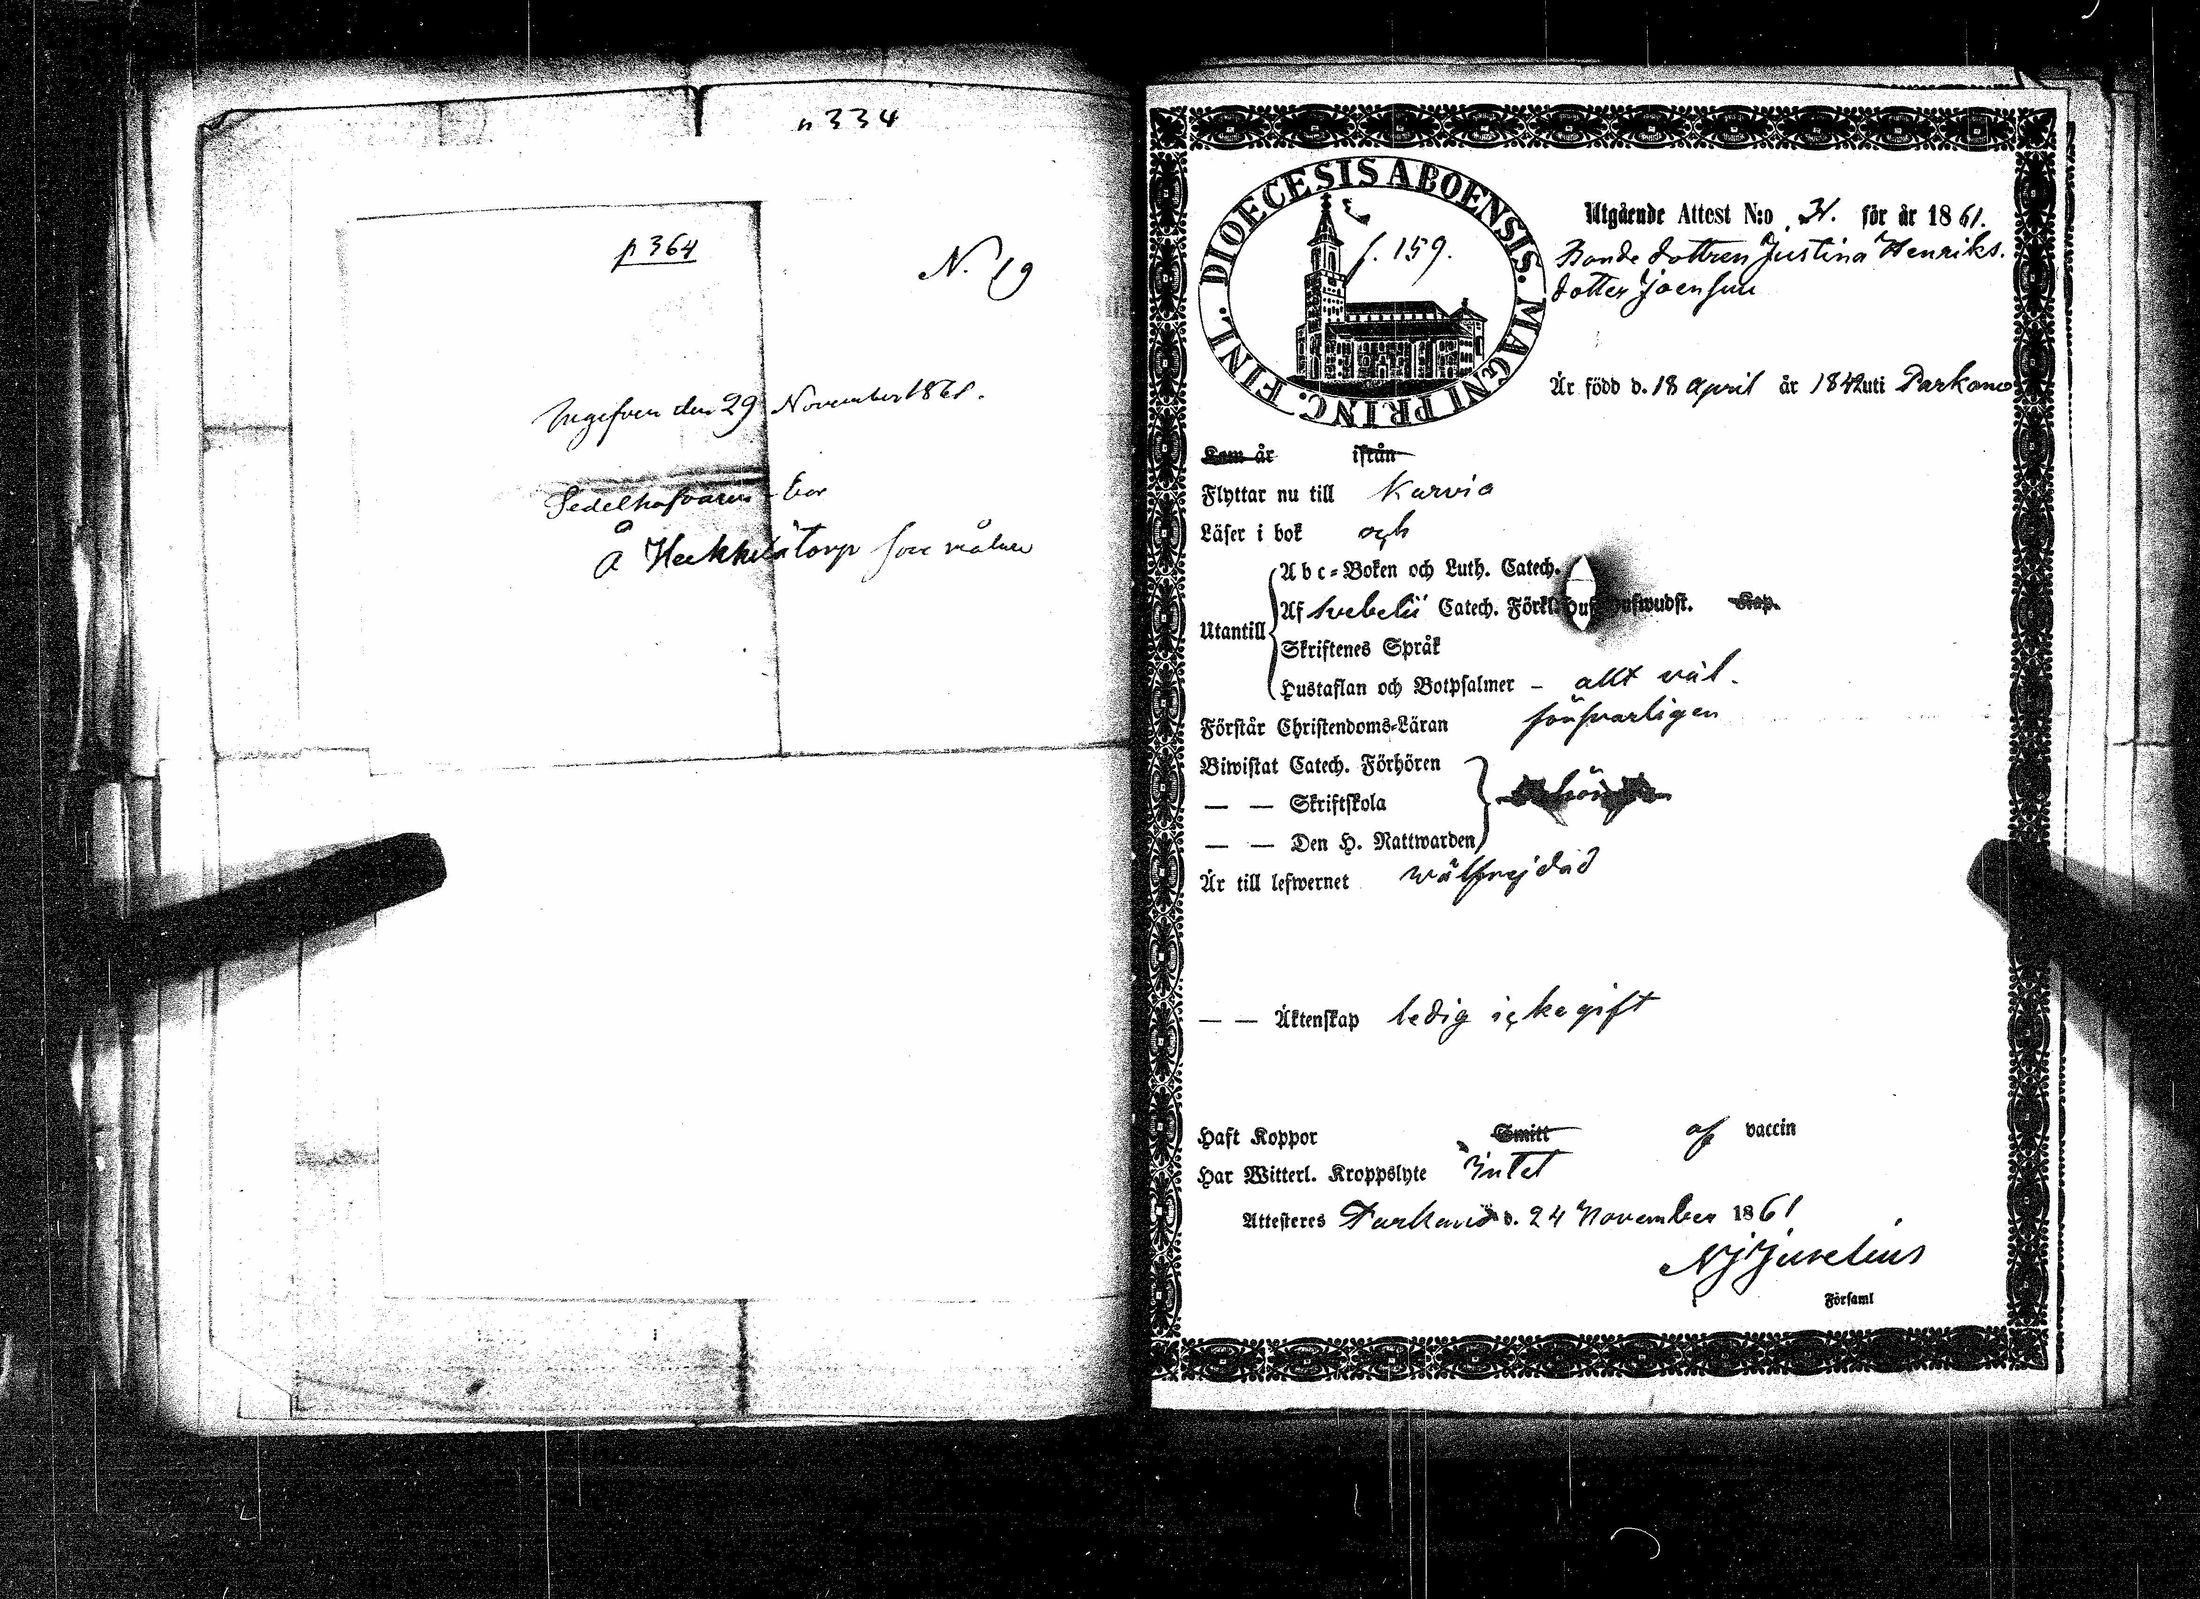 p 334
p 364
N. 19
Ingifven den 29 November 1861.
Sedelhafvaren - bor
å Heikkilä Torp
DIOECESIS ABOENSIS. MAGNI PRINC. FINL.
f. 159.
Utgående Attest N:o 31. för år 1861.
Bonde dottren Justina Henriks.
dotter Joensuu
Är född d. 18 April år 1842 uti Parkano
Kom år ifrån
Flyttar nu till Karvia
Läser i bok och
Utantill
Abc-Boken och Luth. Catech.
Af Svebelii Catech. Förkl. Hufwudst. Kap.
Skriftenes Språk
Hustaflan och Botpsalmer - allt väl.
Förstår Christendoms-Läran försvarligen
Biwistat Catech. Förhören
— — Skriftskola
— — Den H. Nattwarden
Är till lefwernet wälfrejdad
— — Äktenskap ledig icke gift
Haft Koppor Smitt af vaccin
Har Witterl. Kroppslyte Intet
Attesteres Parkano d. 24 November 1861
NJ Juvelius
Församl